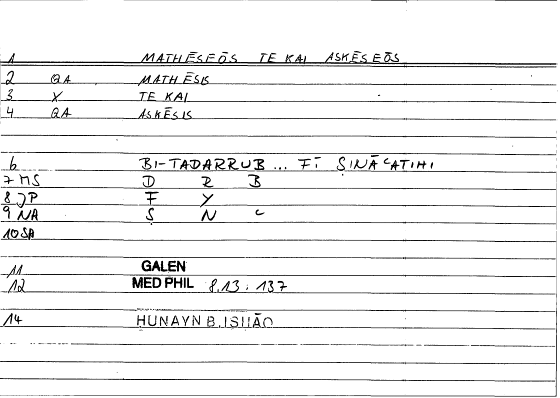 1 MATHĒSEŌS TE KAI ASKĒSEŌS
2 QA MATHĒSIS
3 X TE KAI
4 QA ASKĒSIS
6 BI-TADARRUB ... FĪ ṢINĀʿATIHI
7 MS D R B
8 JP F Y
9 NA Ṣ N ʿ
10 SA
11 GALEN
12 MED PHIL 8.13 : 137
14 HUNAYN B. ISḤĀQ